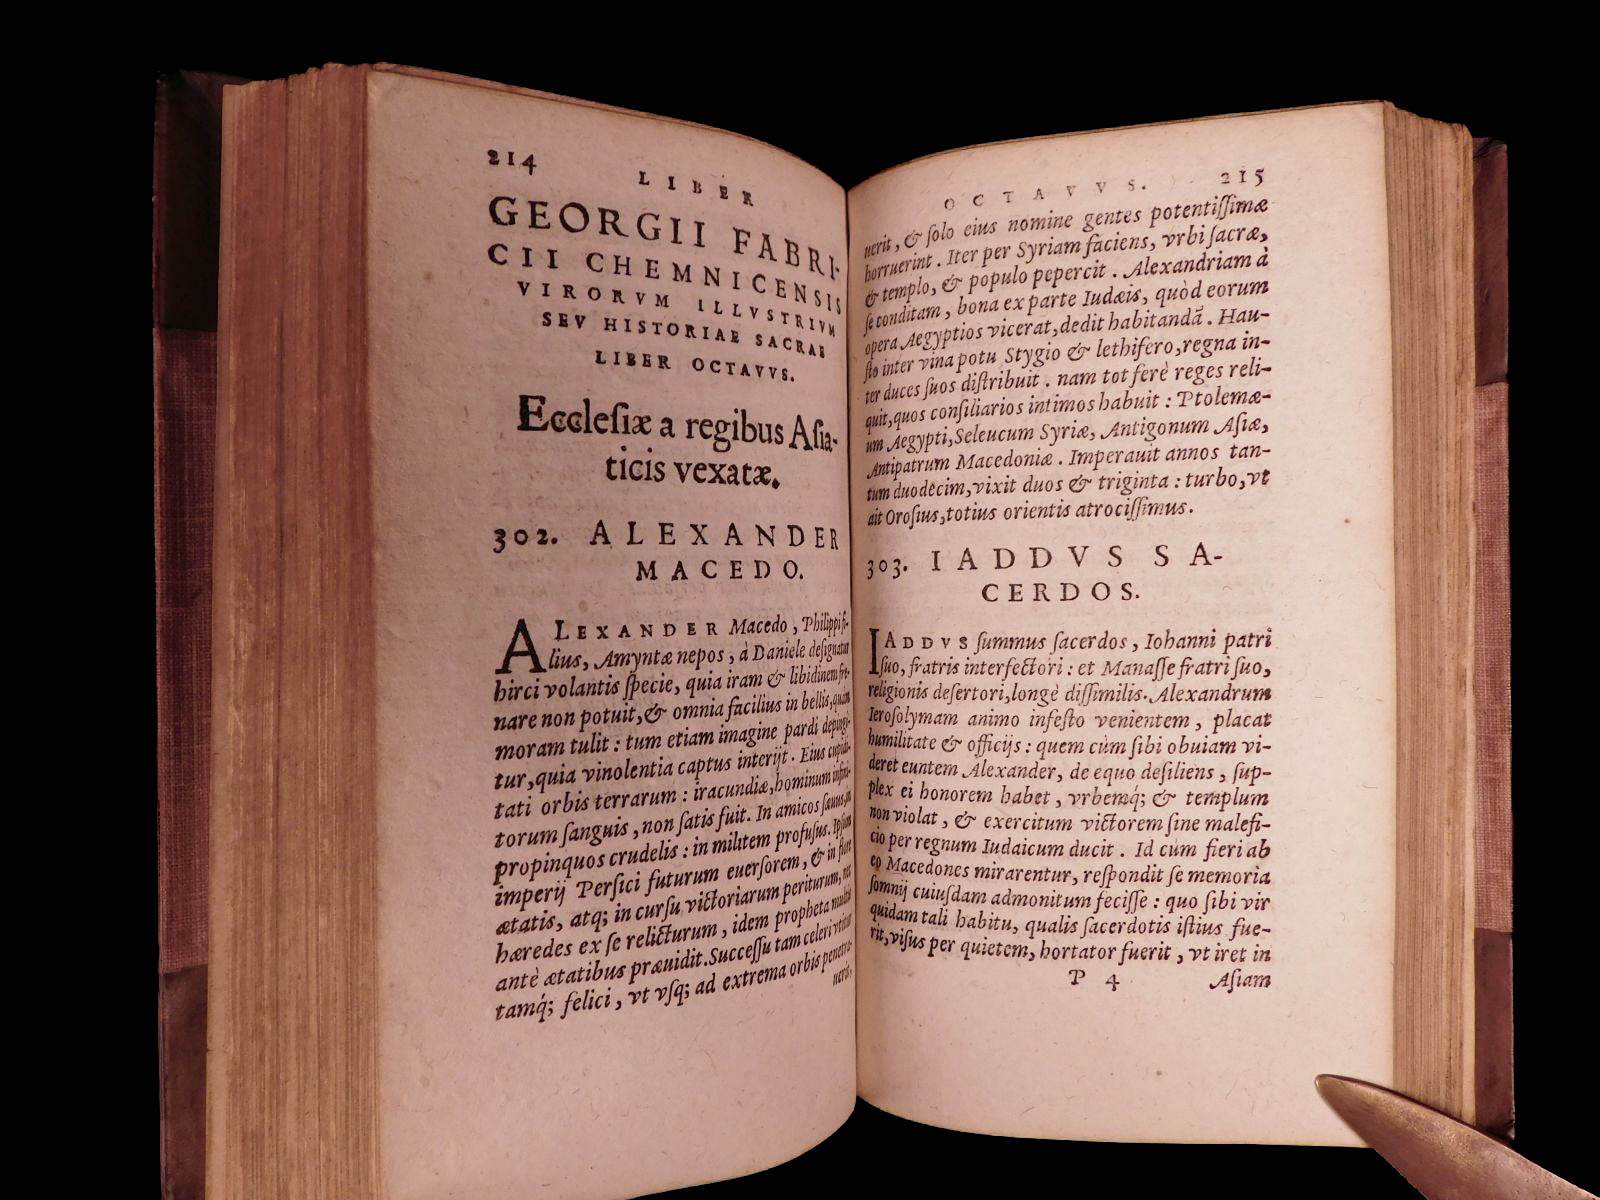 214
LIBER
GEORGII FABRI-
CII CHEMNICENSIS
VIRORVM ILLVSTRIVM
SEV HISTORIAE SACRAE
LIBER OCTAVVS.
Eccleſiæ a regibus Aſia-
ticis vexatæ.
302. ALEXANDER
MACEDO.
ALEXANDER Macedo, Philippi fi-
lius, Amyntæ nepos, à Daniele deſignatur
hirci volantis ſpecie, quia iram & libidinem fre-
nare non potuit, & omnia facilius in bellis, quàm
moram tulit: tum etiam imagine pardi depingi-
tur, quia vinolentia captus interijt. Eius cupidi-
tati orbis terrarum: iracundiæ, hominum infini-
torum ſanguis, non ſatis fuit. In amicos ſæuus, in
propinquos crudelis: in militem profuſus. Ipſum
imperij Perſici futurum euerſorem, & in flore
ætatis, atq; in curſu victoriarum periturum, nec
hæredes ex ſe relicturum, idem propheta multis
antè ætatibus præuidit. Succeſſu tam celeri vtitur
tamq́; felici, vt vſq; ad extrema orbis penetra-
uerit,
OCTAVVS.
215
uerit, & ſolo eius nomine gentes potentiſſimæ
horruerint. Iter per Syriam faciens, vrbi ſacræ,
& templo, & populo pepercit. Alexandriam à
ſe conditam, bona ex parte Iudæis, quòd eorum
opera Aegyptios vicerat, dedit habitandā. Hau-
ſto inter vina potu Stygio & lethifero, regna in-
ter duces ſuos diſtribuit. nam tot ferè reges reli-
quit, quos conſiliarios intimos habuit: Ptolemæ-
um Aegypti, Seleucum Syriæ, Antigonum Aſiæ,
Antipatrum Macedoniæ. Imperauit annos tan-
tum duodecim, vixit duos & triginta: turbo, vt
ait Oroſius, totius orientis atrociſſimus.
303. IADDVS SA-
CERDOS.
IADDVS ſummus ſacerdos, Iohanni patri
ſuo, fratris interfectori: et Manaſſe fratri ſuo,
religionis deſertori, longè diſſimilis. Alexandrum
Ieroſolymam animo infeſto venientem, placat
humilitate & officijs: quem cùm ſibi obuiam vi-
deret euntem Alexander, de equo deſiliens, ſup-
plex ei honorem habet, vrbemq́; & templum
non violat, & exercitum victorem ſine malefi-
cio per regnum Iudaicum ducit. Id cum fieri ab
eo Macedones mirarentur, reſpondit ſe memoria
ſomnij cuiuſdam admonitum feciſſe: quo ſibi vir
quidam tali habitu, qualis ſacerdotis iſtius fue-
rit, viſus per quietem, hortator fuerit, vt iret in
P 4
Aſiam